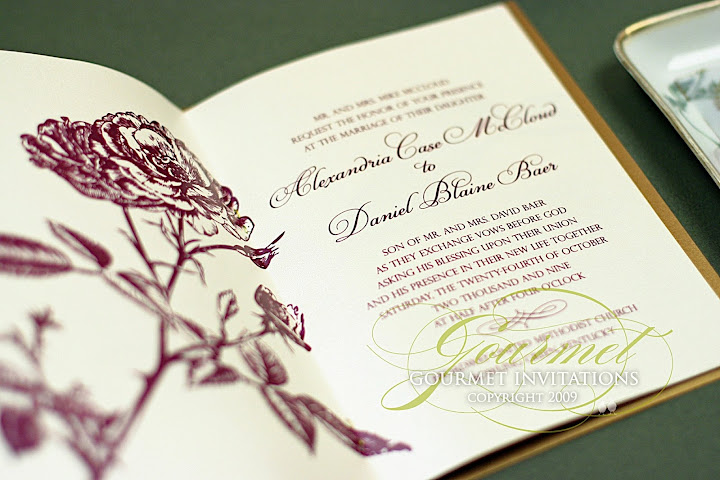 MR. AND MRS. MIKE MCCLOUD
REQUEST THE HONOR OF YOUR PRESENCE
AT THE MARRIAGE OF THEIR DAUGHTER
Alexandria Case McCloud
to
Daniel Blaine Baer
SON OF MR. AND MRS. DAVID BAER
AS THEY EXCHANGE VOWS BEFORE GOD
ASKING HIS BLESSING UPON THEIR UNION
AND HIS PRESENCE IN THEIR NEW LIFE TOGETHER
SATURDAY, THE TWENTY-FOURTH OF OCTOBER
TWO THOUSAND AND NINE
AT HALF AFTER FOUR O'CLOCK
METHODIST CHURCH
KENTUCKY
Gourmet
GOURMET INVITATIONS
COPYRIGHT 2009